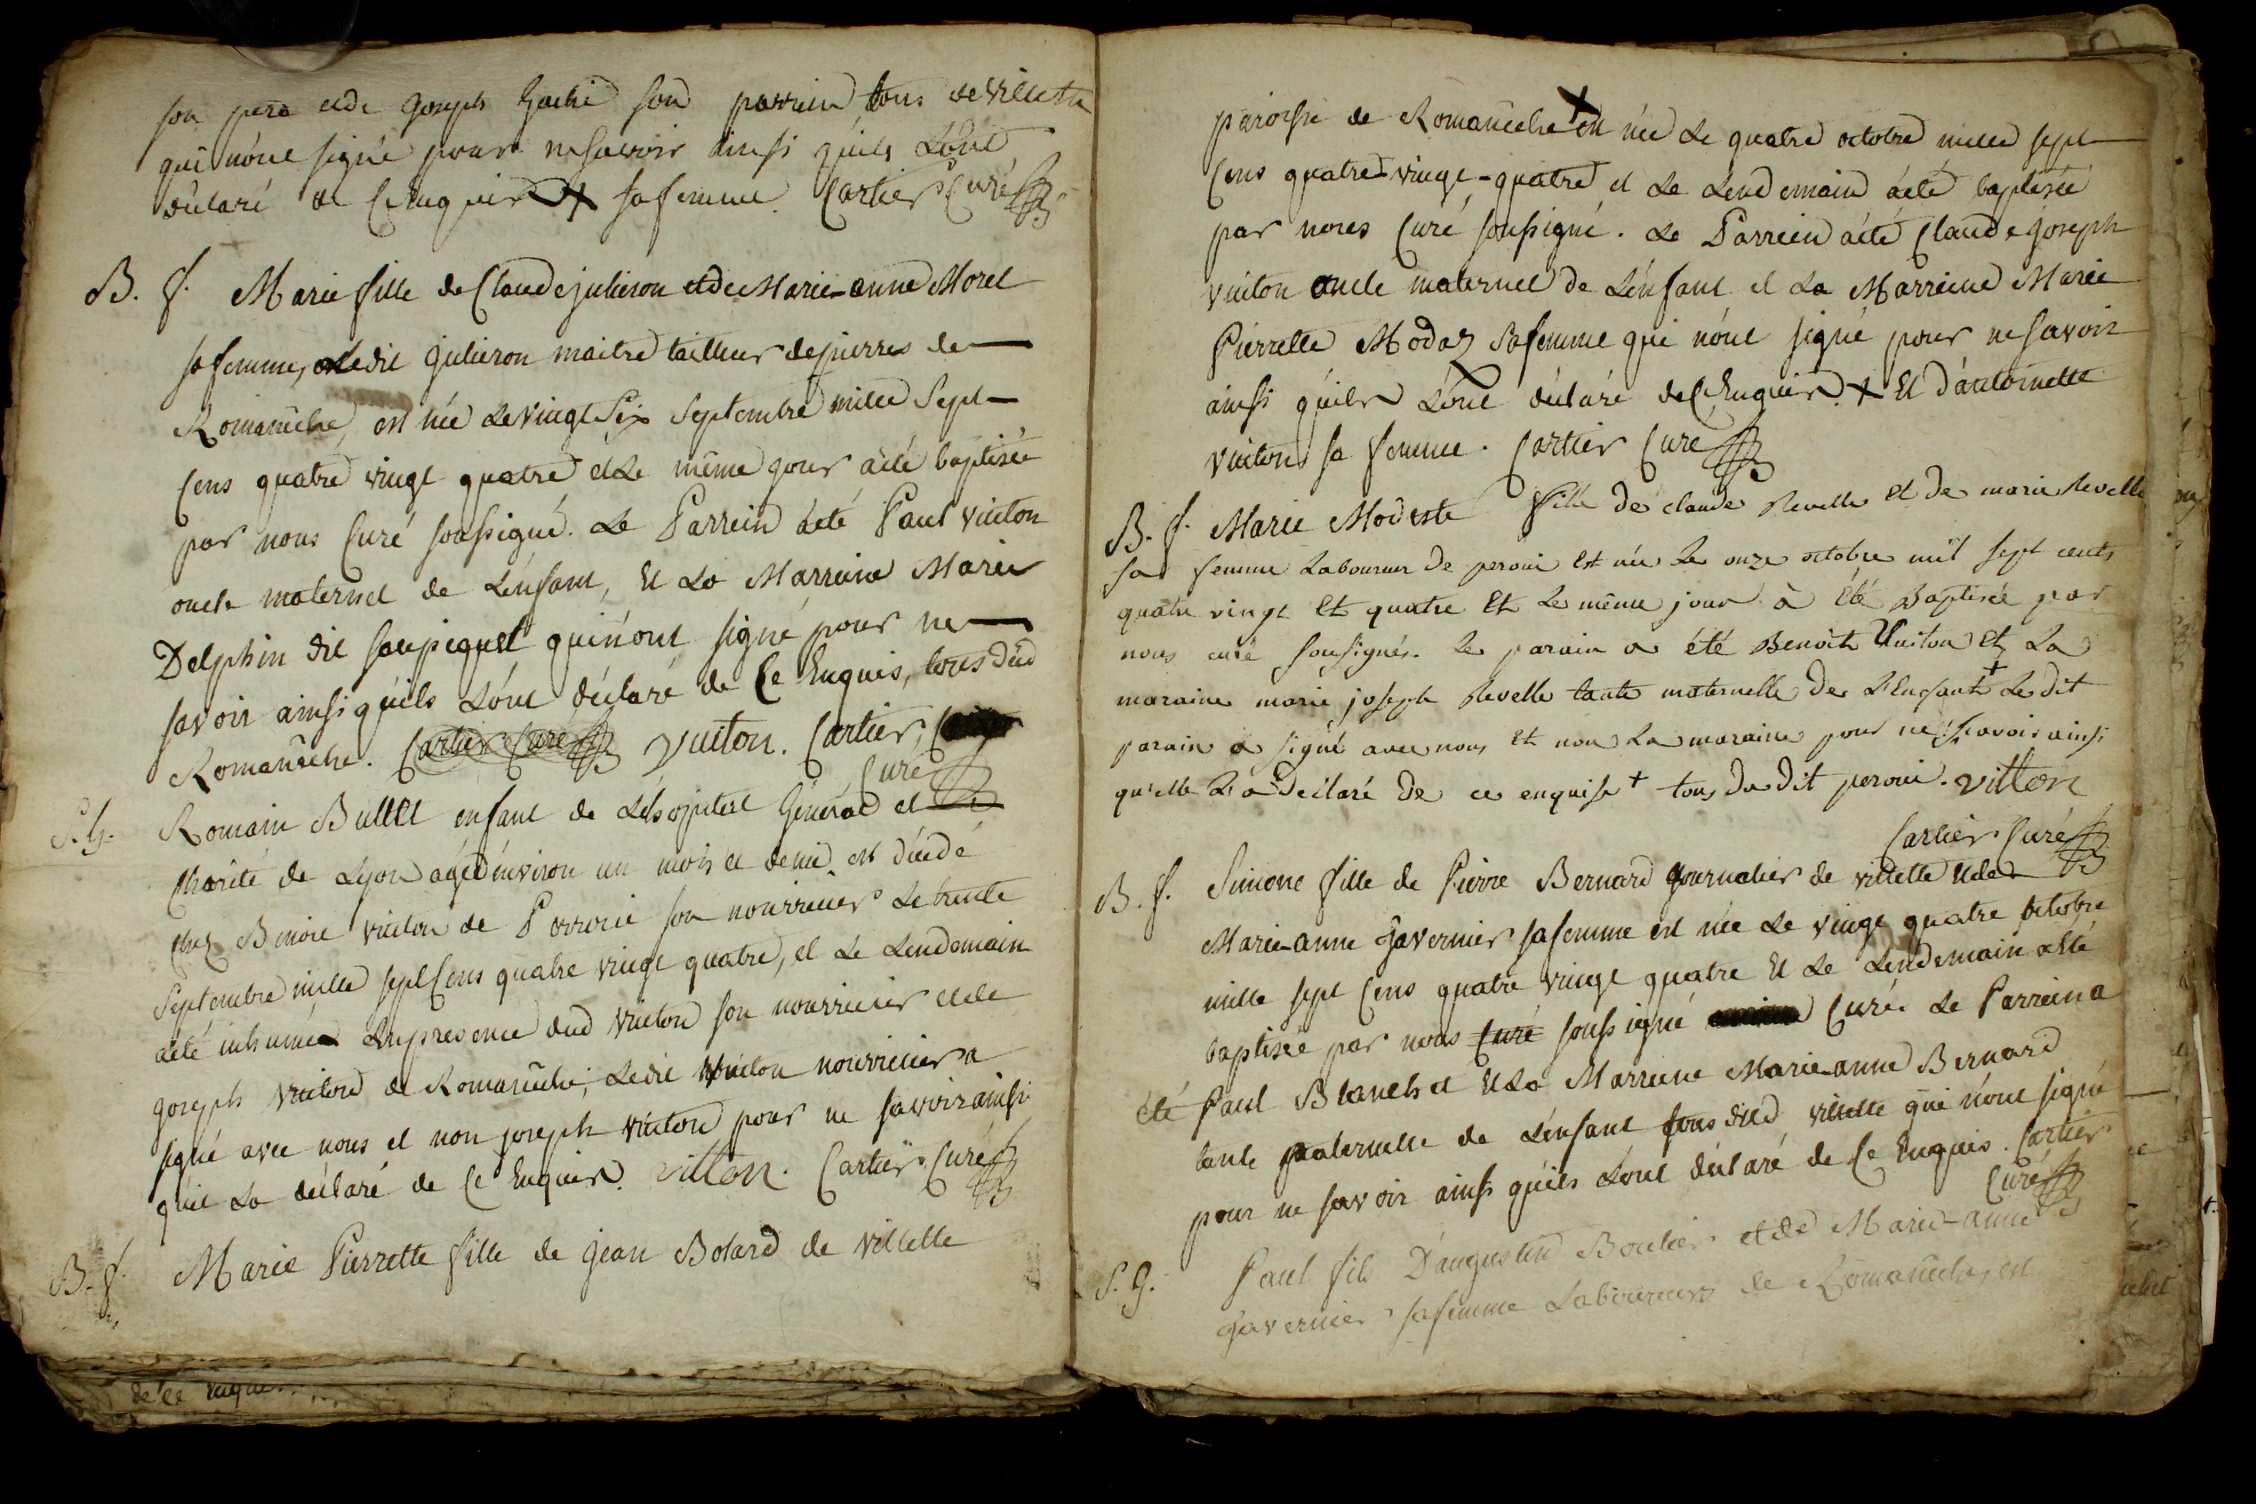 son pere et de Joseph son parrein tous de villette
qui n'ont signé pour ne savoir ainsi qu'ils L'ont
déclaré de Ce Enquis + sa femme. Cartier Curé
B. f. Marie fille de Claude julieron et de Marie-anne Morel
sa femme, Ledit julieron maitre tailleur de pierres de
Romanêche, est née Le vingt Six Septembre mille Sept
Cens quatre vingt quatre et Le même jour a été baptisée
par nous Curé soussigné. Le Parrein a été Paul vuiton
oncle maternel de L'enfant, et La Marreine Marie
Delphin dit saupiquet qui n'ont signé pour ne
savoir ainsi qu'ils L'ont déclaré de Ce Enquis, tous dud
Romanêche. Cartier Curé Vuiton. Cartier,
Curé
S. G. Romain Bullet enfant de L'hospital Général et
Charité de Lyon agé d'environ un mois et demi est décédé
chez Benoit vuiton de Perroui son nourricier Le trente
Septembre mille sept Cens quatre vingt quatre, et Le Lendemain
a été inhumé En presence dud vuiton son nourricier et de
joseph vuiton de Romanêche; Ledit vuiton nourricier a
signé avec nous et non joseph vuiton pour ne savoir ainsi
qu'il La déclaré de Ce Enquis. vitton. Cartier Curé
B. f. Marie Pierrette fille de jean Botard de villette
de Ce Enquis
paroisse de Romanêche + est née Le quatre octobre mille sept
Cens quatre-vingt-quatre et Le Lendemain a été baptisée
par nous Curé soussigné. Le Parrein a été Claude joseph
vuiton oncle maternel de L'enfant et La Marreine Marie
Pierrette Modaz Sa femme qui n'ont signé pour ne savoir
ainsi qu'ils L'ont déclaré de Ce Enquis. + Et d'antoinette
vuiton sa femme. Cartier Curé
B. f. Marie Modeste fille de claude Revelle et de marie Revelle
sa femme Laboureur de peroui est née Le onze octobre mil sept cents
quatre vingt Et quatre Et Le même jour à Eté Baptisée par
nous curé sousigné. Le parain a été Benoit Vuiton Et La
maraine marie joseph Revelle tante maternelle de L'Enfant + Le dit
parain a signé avec nous Et non La maraine pour ne scavoir ainsi
qu'elle L'a Déclaré De ce enquise + tous du dit peroui. vitton
Cartier Curé
B. f. Simone fille de Pierre Bernard journalier de villette et de
Marie-anne Javernier sa femme est née Le vingt quatre octobre
mille sept Cens quatre vingt quatre Et Le Lendemain a été
baptisée par nous Curé soussigné Curé. Le Parrein a
été Paul Blanchet Et La Marreine Marie-anne Bernard
tante paternelle de L'enfant tous dud villette qui n'ont signé
pour ne savoir ainsi qu'ils L'ont déclaré de Ce Enquis. Cartier
Curé
S. G. Paul fils D'augustin Boulier et de Marie-anne
Javernier sa femme Laboureurs de Romanêche, est